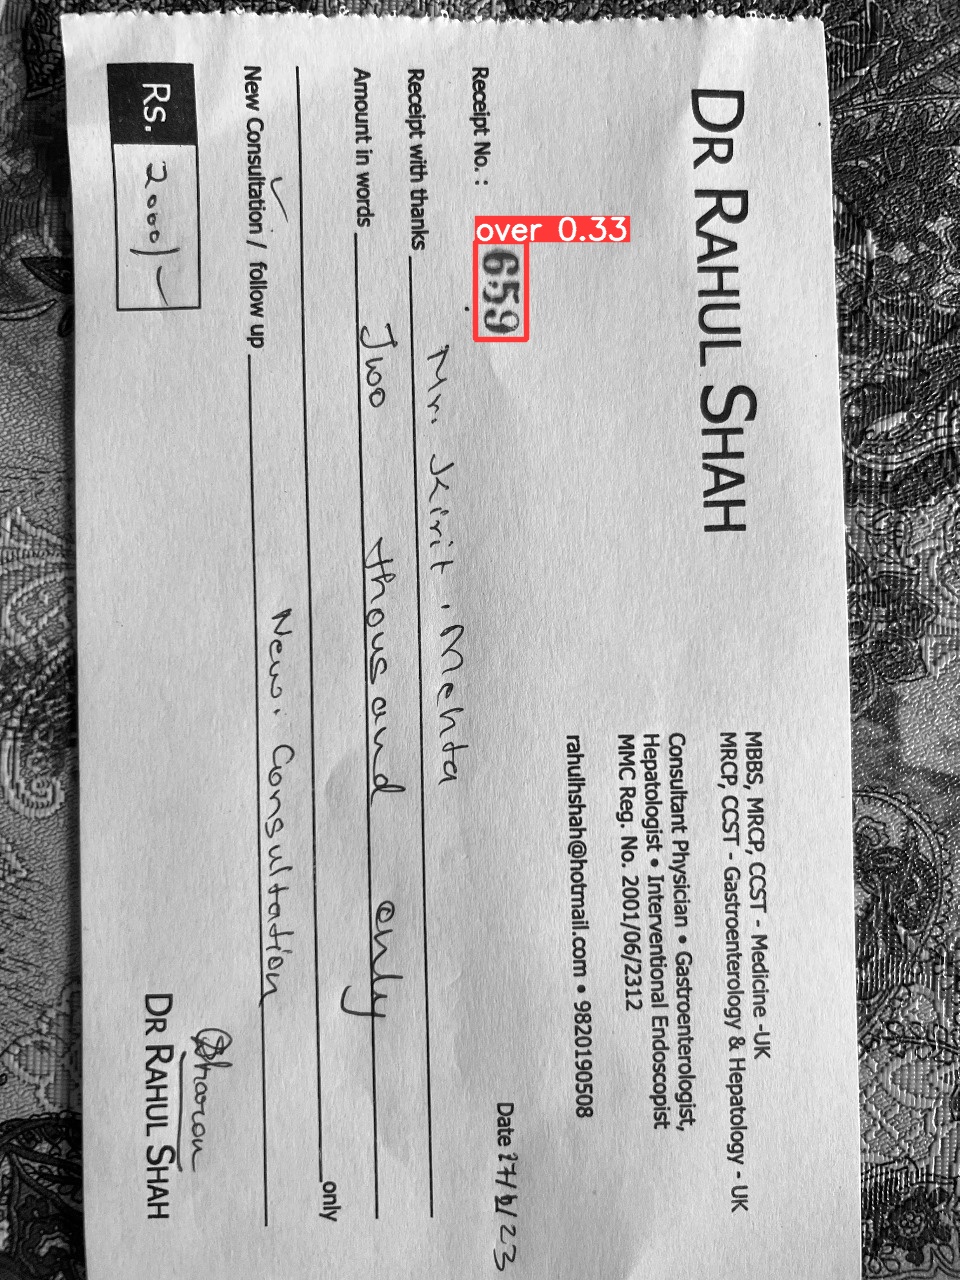 DR RAHUL SHAH
MBBS, MRCP, CCST - Medicine -UK
MRCP, CCST - Gastroenterology & Hepatology - UK
Consultant Physician • Gastroenterologist,
Hepatologist • Interventional Endoscopist
MMC Reg. No. 2001/06/2312
rahulhshah@hotmail.com • 9820190508
over 0.33
Receipt No. : 659
Date /23
Receipt with thanks Mr. Kirit. Mehta
Amount in words Two thousand only
only
New Consultation / follow up New. Consultation
Rs. 2000/-
Sharon
DR RAHUL SHAH